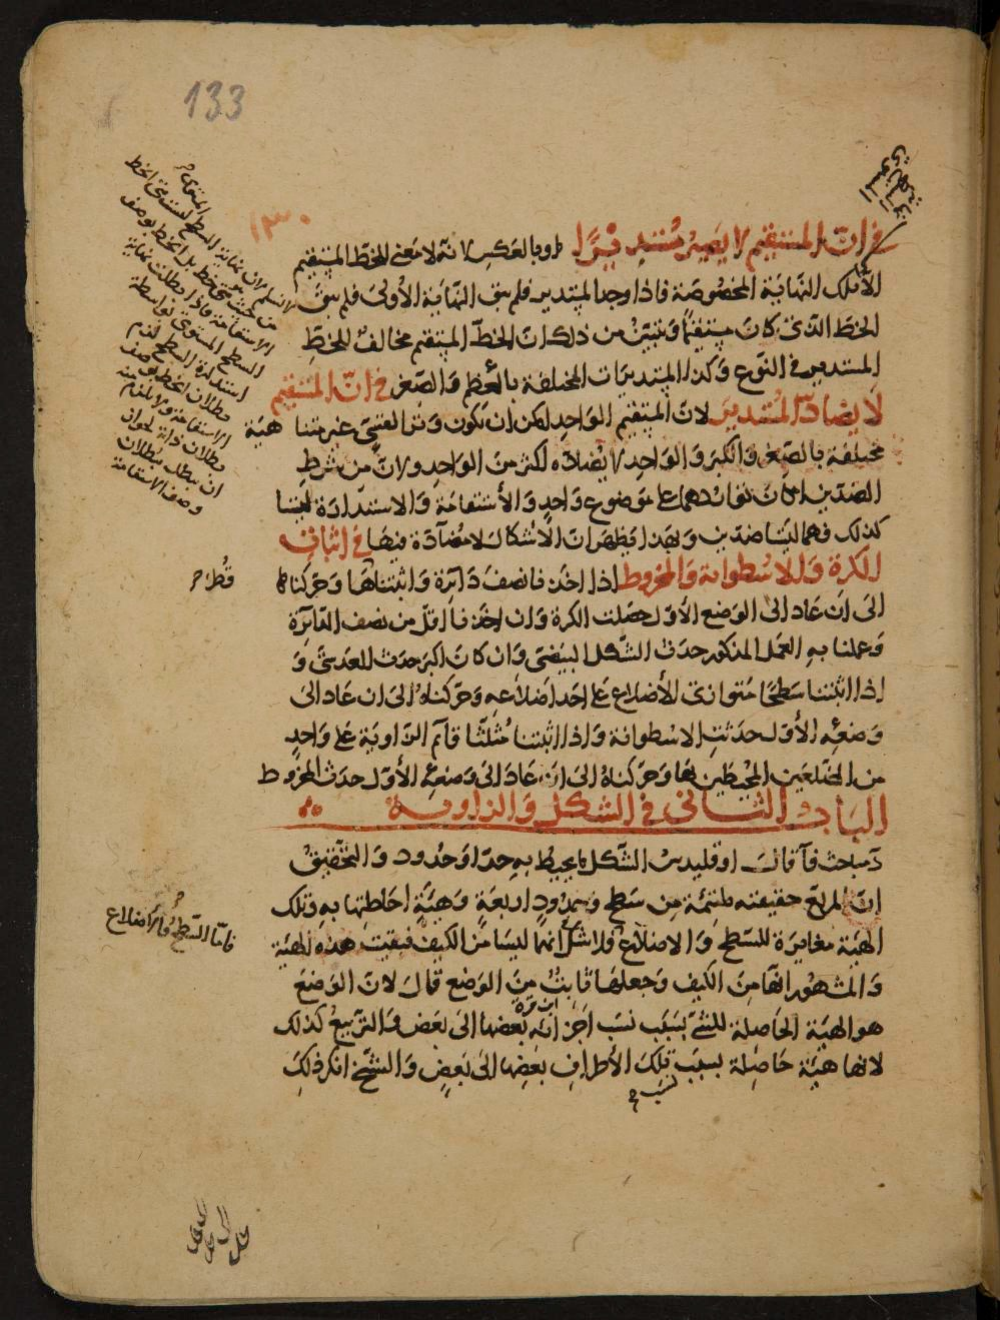 133
١٣٠
في ان المستقيم لا يصير مستديرا وبالعكس لانه لا معنى للخط المستقيم
الا تلك النهاية المخصوصة فاذا وجد المستدير فلم تبق النهاية الأولى فلم يبق
الخط الذي كان مستقيما وتبين من ذلك ان الخط المستقيم مخالف للخط
المستدير في النوع وكذا المستديرات المختلفة بالعظم والصغر في ان المستقيم
لا يضاد المستدير لان المستقيم الواحد لكن ان تكون وتر القسي غير متناهية
مختلفة بالصغر والكبر والواحد لا يضاده اكثر من الواحد ولان من شرط
الضدين امكان تواردهما على موضوع واحد والاستقامة والاستدارة ليستا
كذلك فهما ليسا ضدين وبهذا يظهر ان الاشكال لا مضادة فيها في اثبات
الكرة والاسطوانة والمخروط اذا اخذنا نصف دائرة واثبتناها وحركناها
الى ان عاد الى الوضع الاول حصلت الكرة وان اخذنا اقل من نصف الدائرة
وعملنا به العمل المذكور حدث الشكل البيضي وان كان اكبر حدث العدسي و
اذا اثبتنا سطحا متوازي الأضلاع على احد اضلاعه وحركناه الى ان عاد الى
وضعه الأول حدثت الاسطوانة واذا اثبتنا مثلثا قائم الزاوية على واحد
من الضلعين المحيطين بها وحركناه الى ان عاد الى وضعه الأول حدث المخروط
الباب الثاني في الشكل والزاوية
د مباحث فآ قال اوقليدس الشكل ما يحيط به حد او حدود والتحقيق
ان المربع حقيقته ملتئمة من سطح وحدود اربعة وهيئة احاطتها به وتلك
الهيئة مغايرة للسطح والاضلاع ولا شك انهما ليسا من الكيف فبقيت هذه الهيئة
والمشهور انها من الكيف وجعلها ثابت بن قرة من الوضع قال لان الوضع
هو الهيئة الحاصلة للشئ بسبب نسب اجزائه بعضها الى بعض والتربيع كذلك
لانها هيئة حاصلة بسبب نسب تلك الأطراف بعضها الى بعض والشيخ انكر ذلك
المستوي
لا نسلم ان نهاية السطح
من حيث هي خط بل الخط بوصف
الاستقامة فاذا بطلت نهاية
السطح المستوي بواسطة
استدارة السطح لزم
بطلان الخط بوصف
الاستقامة ولا يلزم منه
بطلان ذاته لجواز
ان يبطل ببطلان
وصف الاستقامة
قطره
فاما السطح والاضلاع